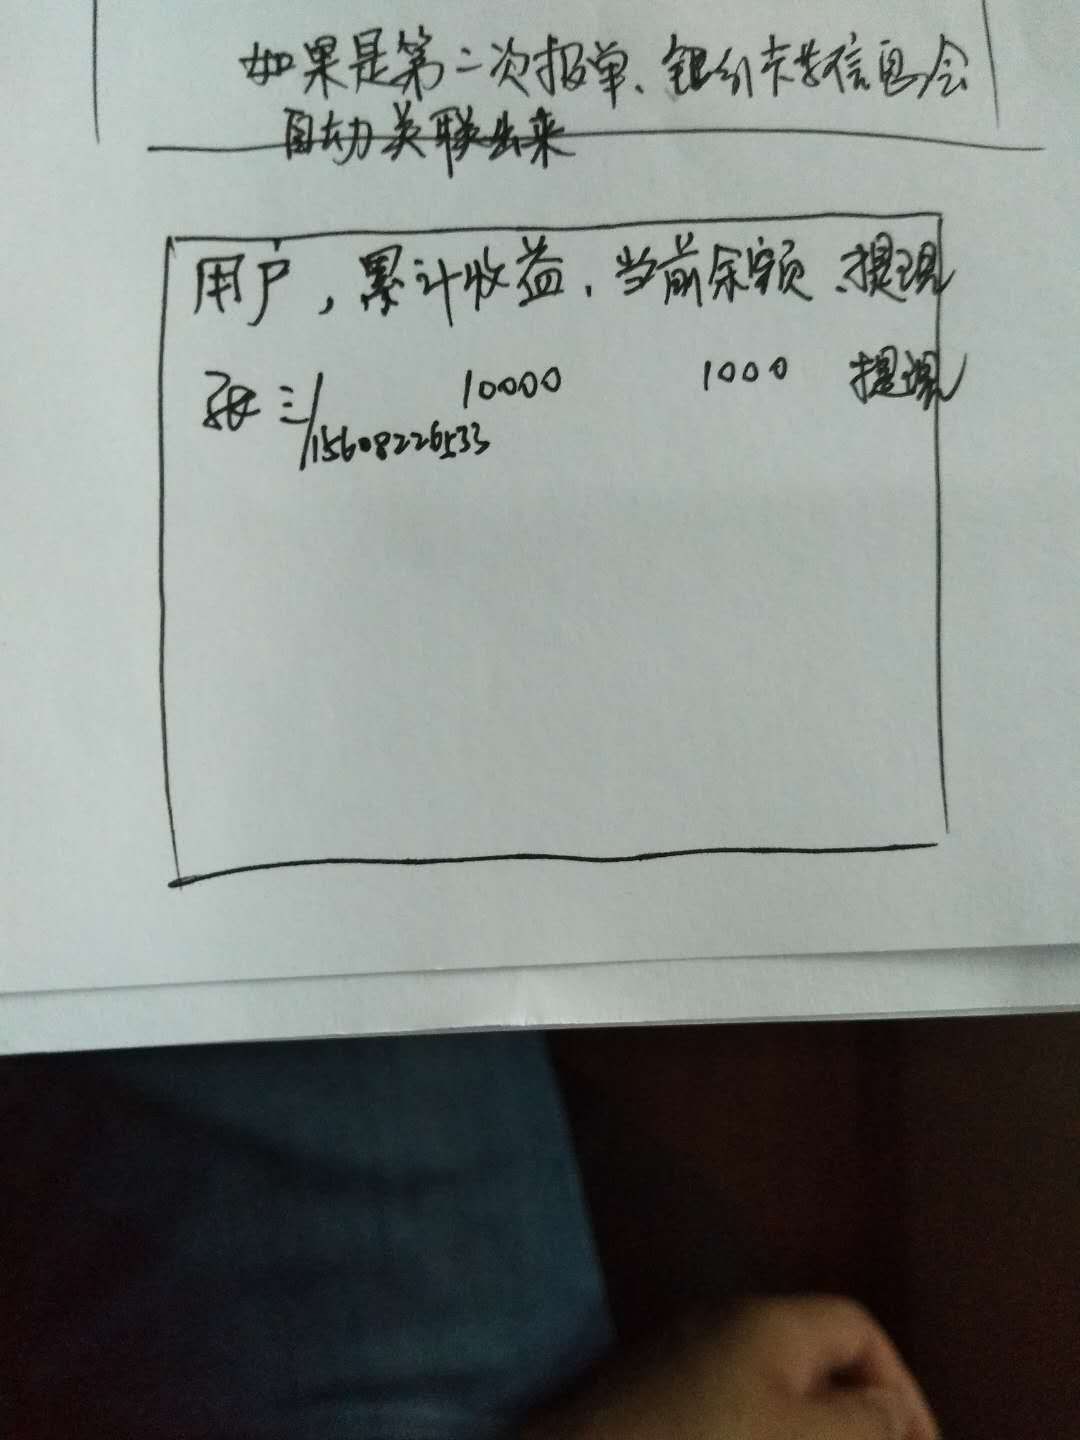 如果是第二次报单、银行卡等信息会
自动关联出来
用户,累计收益、当前余额、提现
张三/15608226533 10000 1000 提现